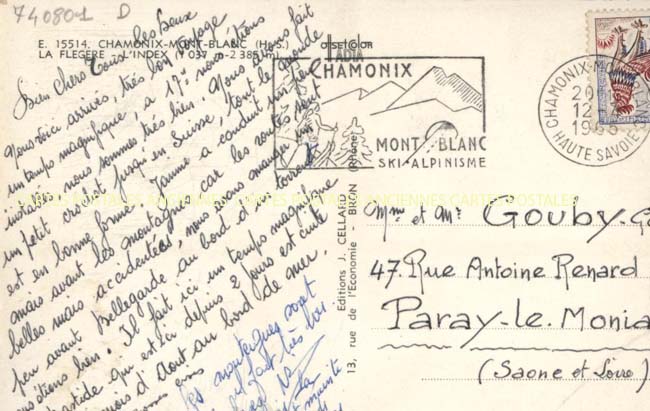 74080-1 D
E. 15514. CHAMONIX-MONT-BLANC (H.-S.)
LA FLEGERE - L'INDEX
Bien chers tous les deux
Nous voici arrivés, très bon voyage
un temps magnifique, à 17h nous étions
installés nous sommes très bien. Nous avons fait
un petit crochet jusqu'en Suisse, tout le monde
est en bonne forme. a conduit
mais avant les montagnes car les routes sont
belles mais accidentées, nous avons manger un
peu avant Bellegarde au bord d'un torrent
étions bien. Il fait ici un temps magnifique
qui est là depuis 2 jours est cuite
d'Aout au bord de mer.
les montagnes sont
il fait très bon.
CHAMONIX
MONT-BLANC
SKI-ALPINISME
CHAMONIX-MO
20
12
HAUTE SAVOIE
CARTES POSTALES ANCIENNES CARTES POSTALES ANCIENNES CARTES POSTALES
Editions J. CELLARD
13, rue de l'Economie - BRON (Rhône)
Mme et Mr GOUBY-G
47. Rue Antoine Renard
Paray-le-Monia
(Saone et Loire)